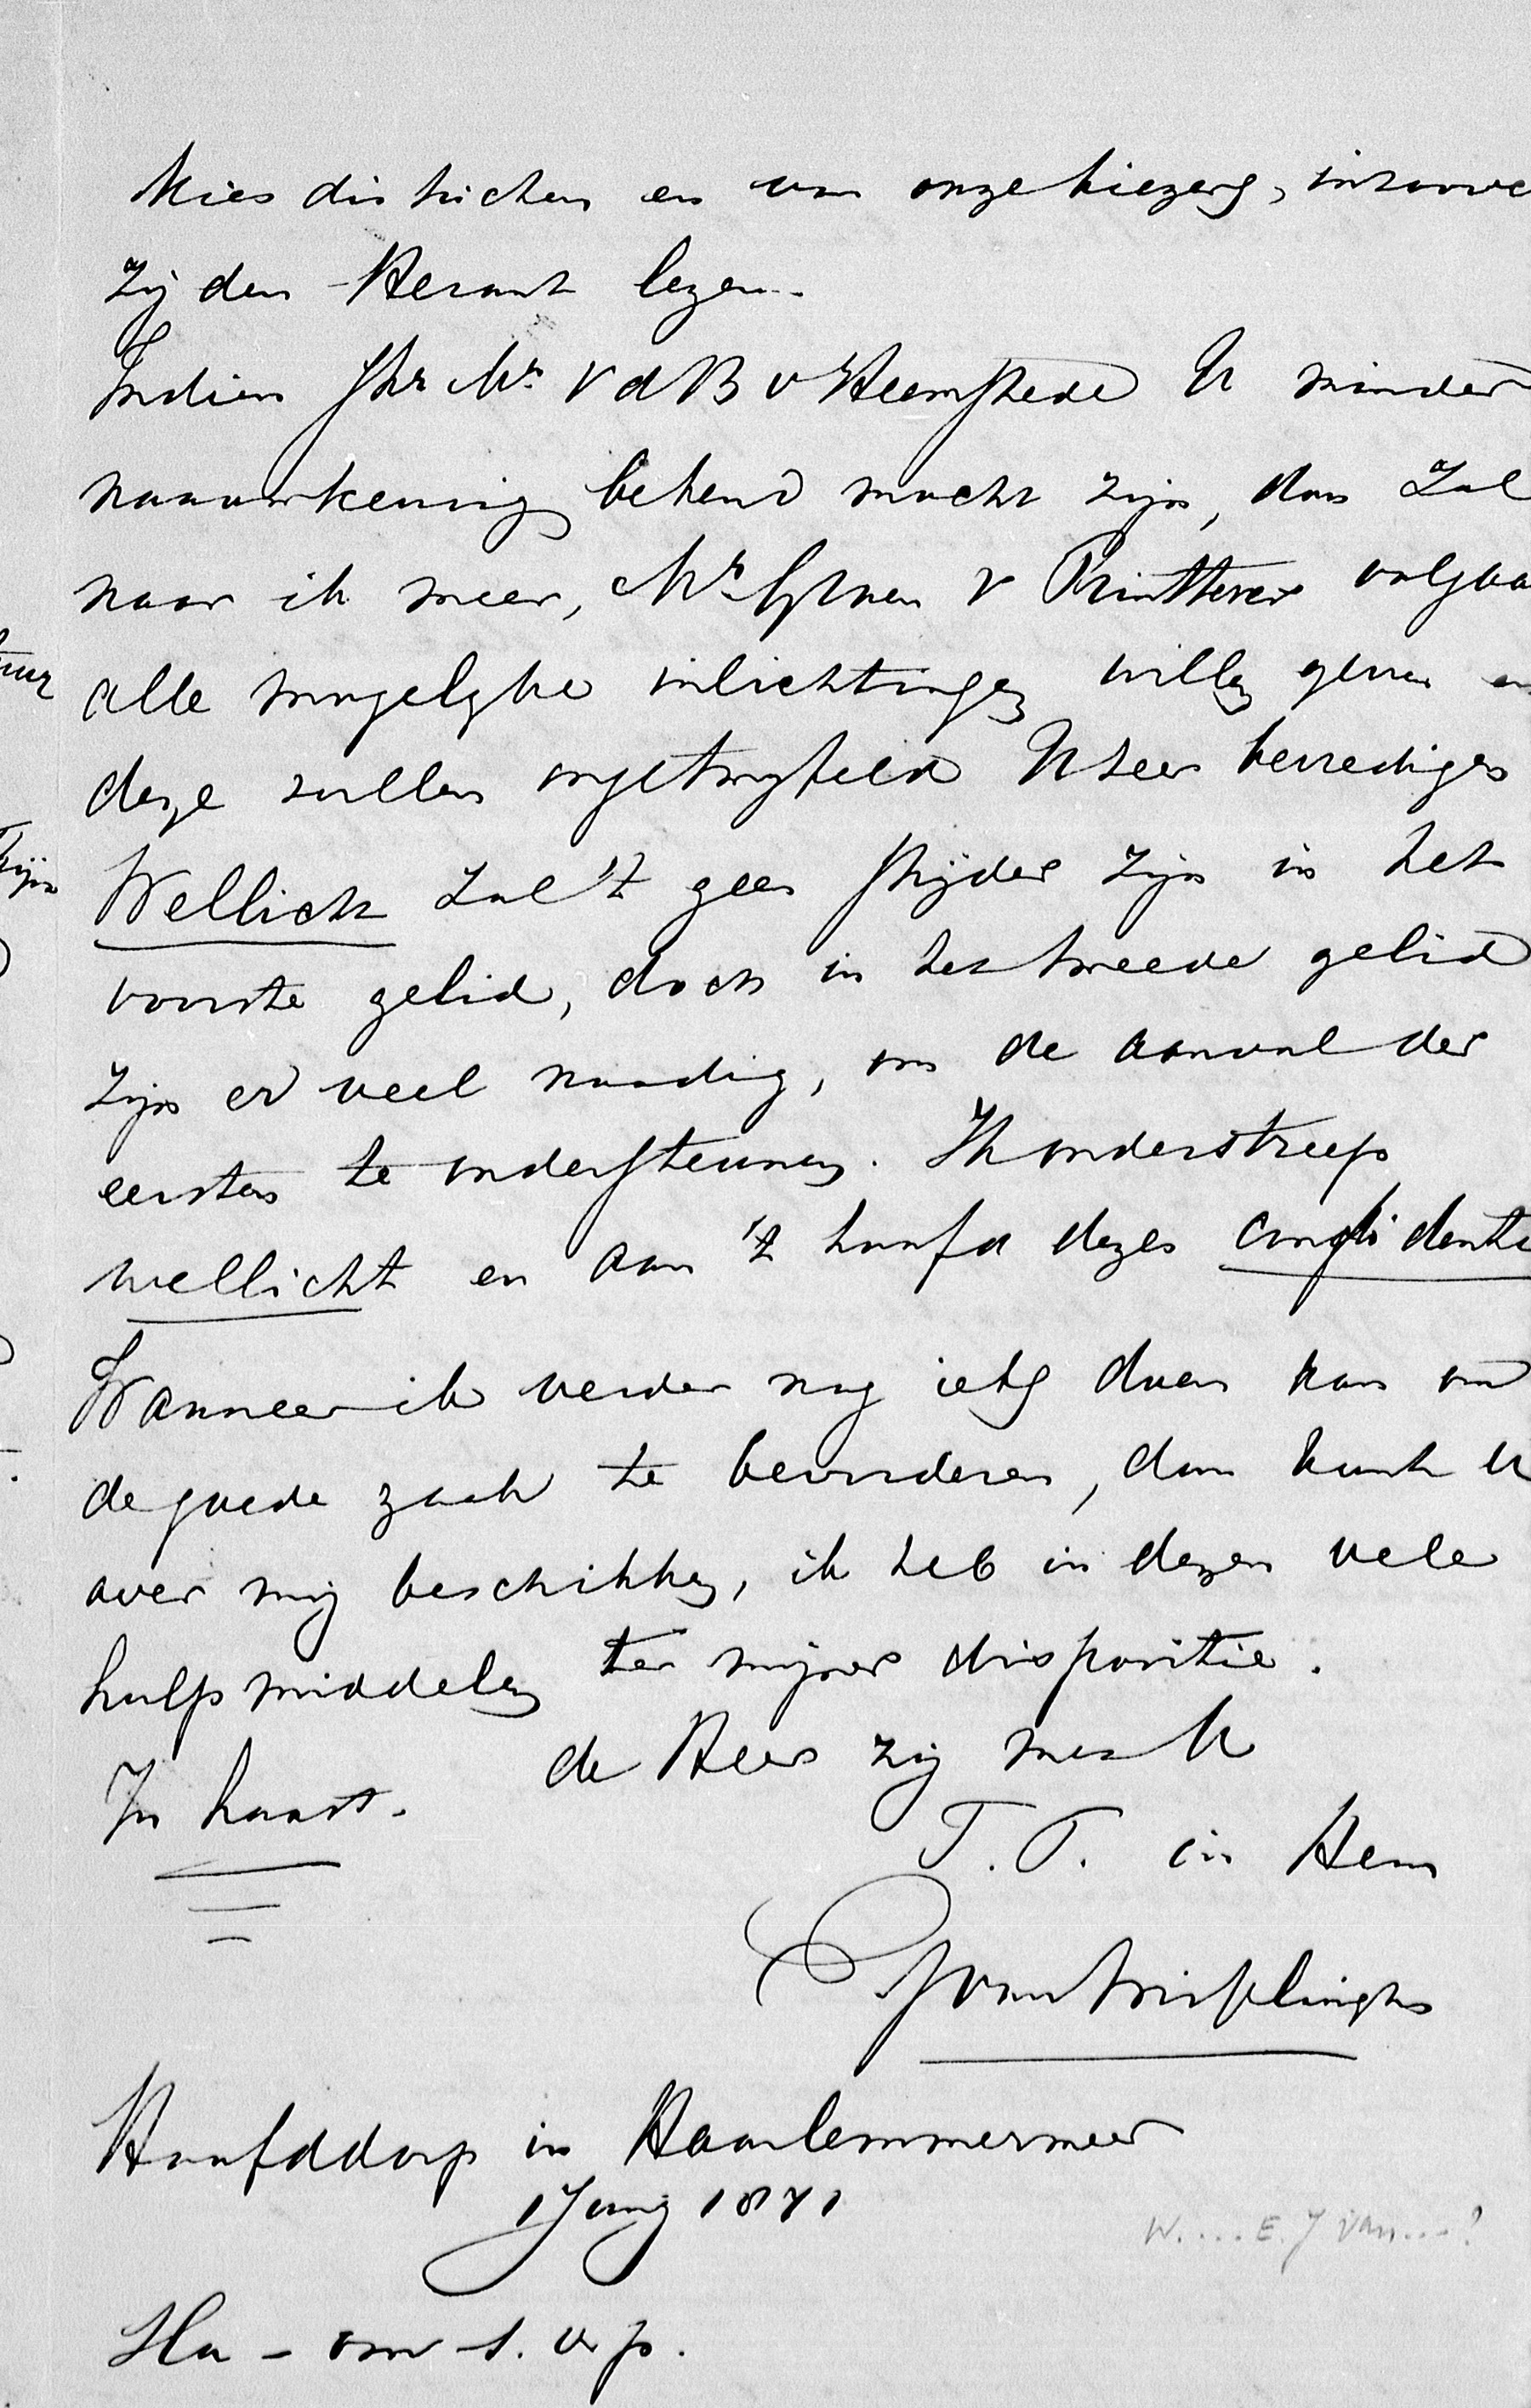 kies districten en van onze kiezers, in zoover
Zij den Heraut lezen.
Indien Jhr Mr. V d B v Heemstede U minder
naauwkeurig bekend mocht zijn, dan Zal
naar ik meen, Mr. Groen v Prinsterer volgaarne
alle mogelyke inlichtingen willen geven en
deze zullen ongetwyfeld U zeer bevredigen
Wellicht Zal 't geen strijder zijn in het
voorste gelid, doch in het tweede gelid
zijn er veel noodig, om de aanval der
eersten te ondersteunen. Ik onderstreep
wellicht en aan 't hoofd dezes confidentie
Wanneer ik verder nog iets doen kan om
de goede zaak te bevorderen, dan kunt U
over mij beschikken, ik heb in dezen vele
hulpmiddelen ter mijner dispositie.
de Heer zij met U
In haast.
T. T. in Hem
Hoofddorp in Haarlemmermeer
1 Junij 1871
W.... E. J van ...?